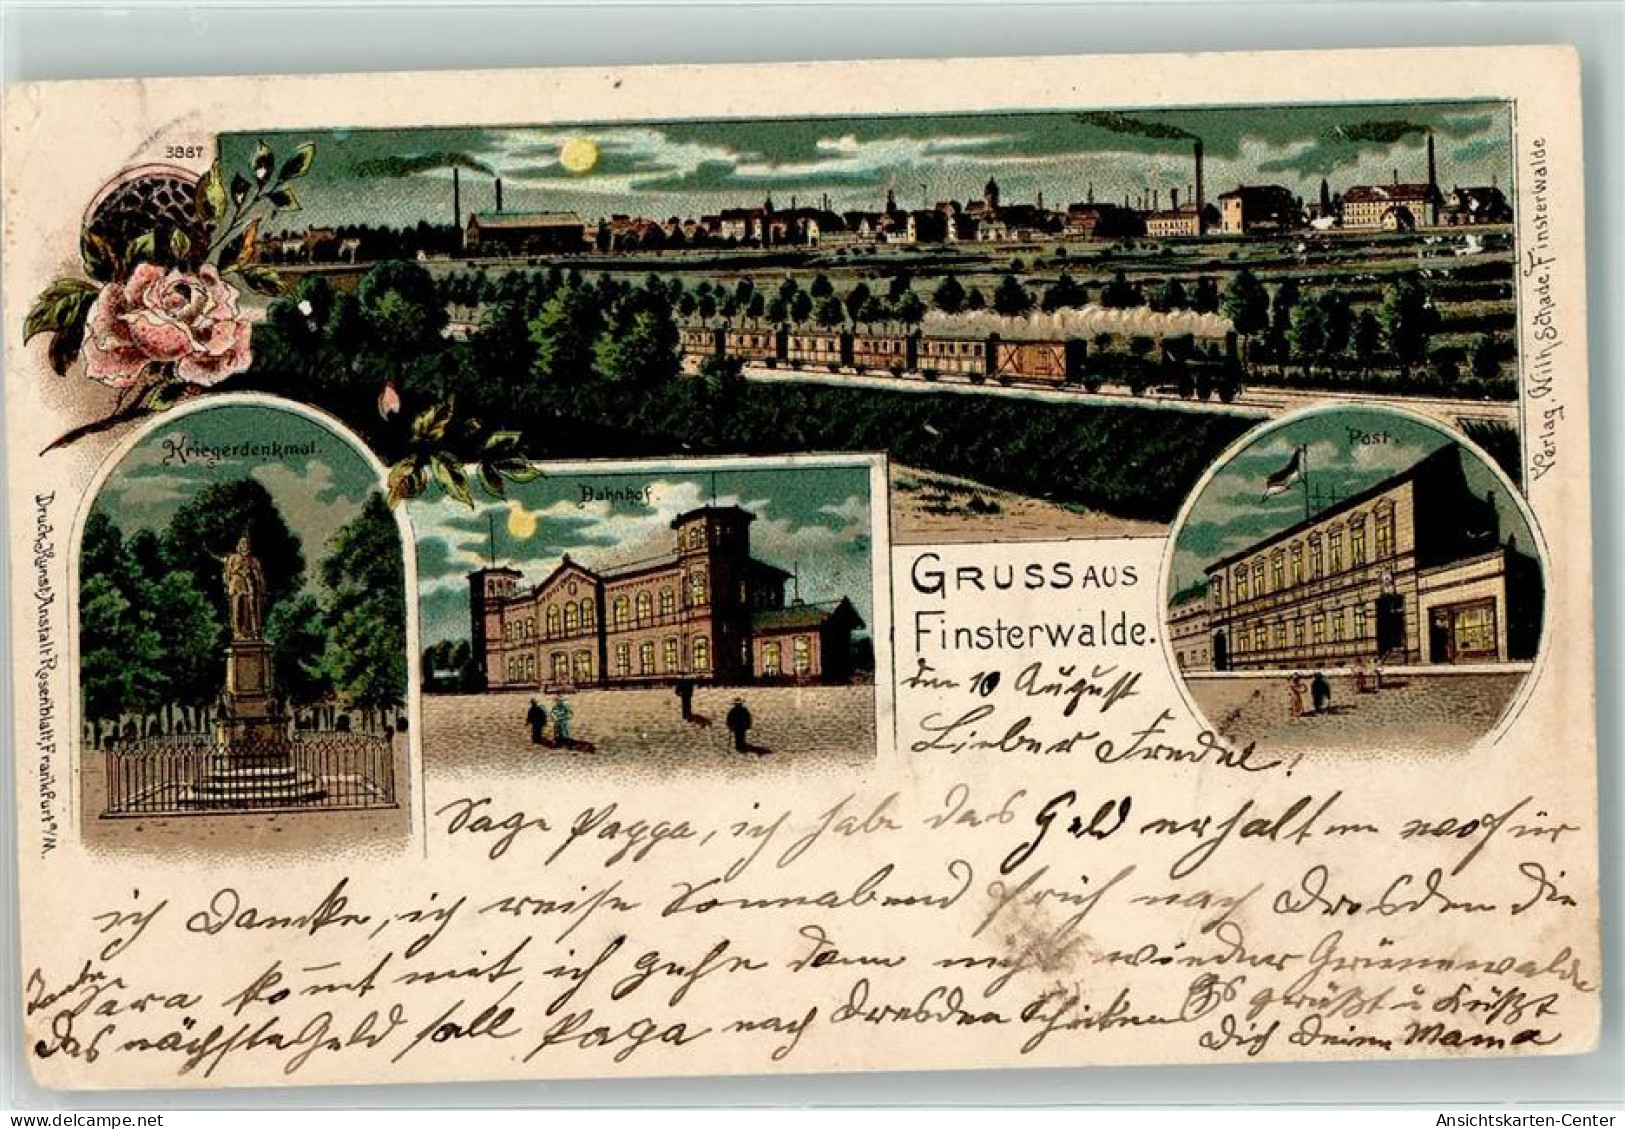 3887
Kriegerdenkmal.
Bahnhof.
Post.
GRUSS AUS
Finsterwalde.
Verlag, Wilh. Schade, Finsterwalde
Druck, Kunst Anstalt Rosenblatt, Frankfurt a/M.
den 10 August
Lieber Fredel!
Sage Pappa, ich habe das Geld erhalten wofür
ich Dancke, ich reise Sonnabend früh nach Dresden die
Sara kom̄t mit, ich gehe dann nicht wieder Grünewalde
das nächste Geld soll Papa nach Dresden Schicken Es grüßt u Küßt
Dich Deine Mama
Ansichtskarten-Center